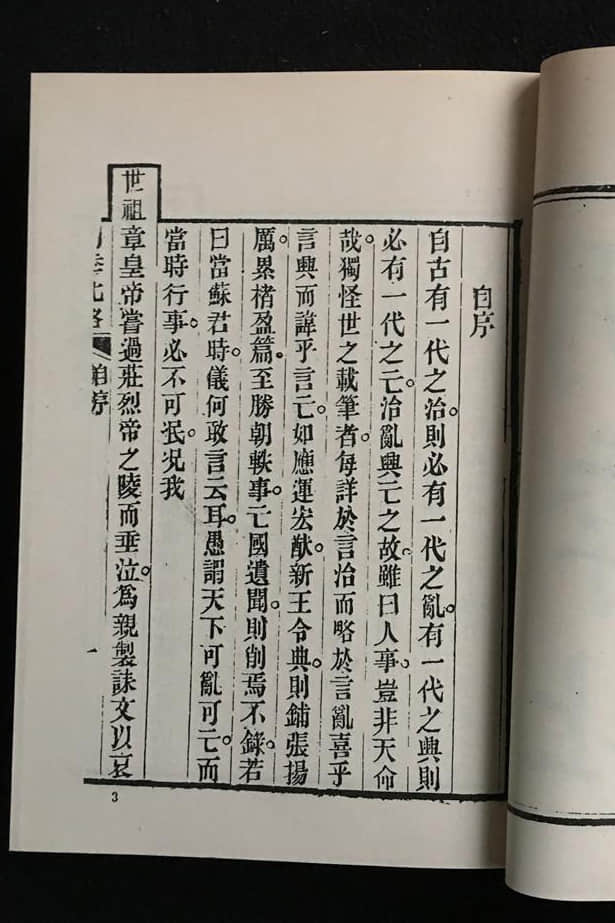 自序
自古有一代之治。則必有一代之亂。有一代之興則
必有一代之亡。治亂興亡之故。雖曰人事。豈非天命
哉。獨怪世之載筆者。每詳於言治而略於言亂喜乎
言興而諱乎言亡。如應運宏猷。新王令典。則鋪張揚
厲。累楮盈篇。至勝朝軼事。亡國遺聞。則削焉不錄。若
曰當蘇君時。儀何敢言云耳。愚謂天下可亂可亡。而
當時行事。必不可泯。況我
世祖章皇帝嘗過莊烈帝之陵而垂泣。爲親製誄文以哀
季北略 自序 一
3